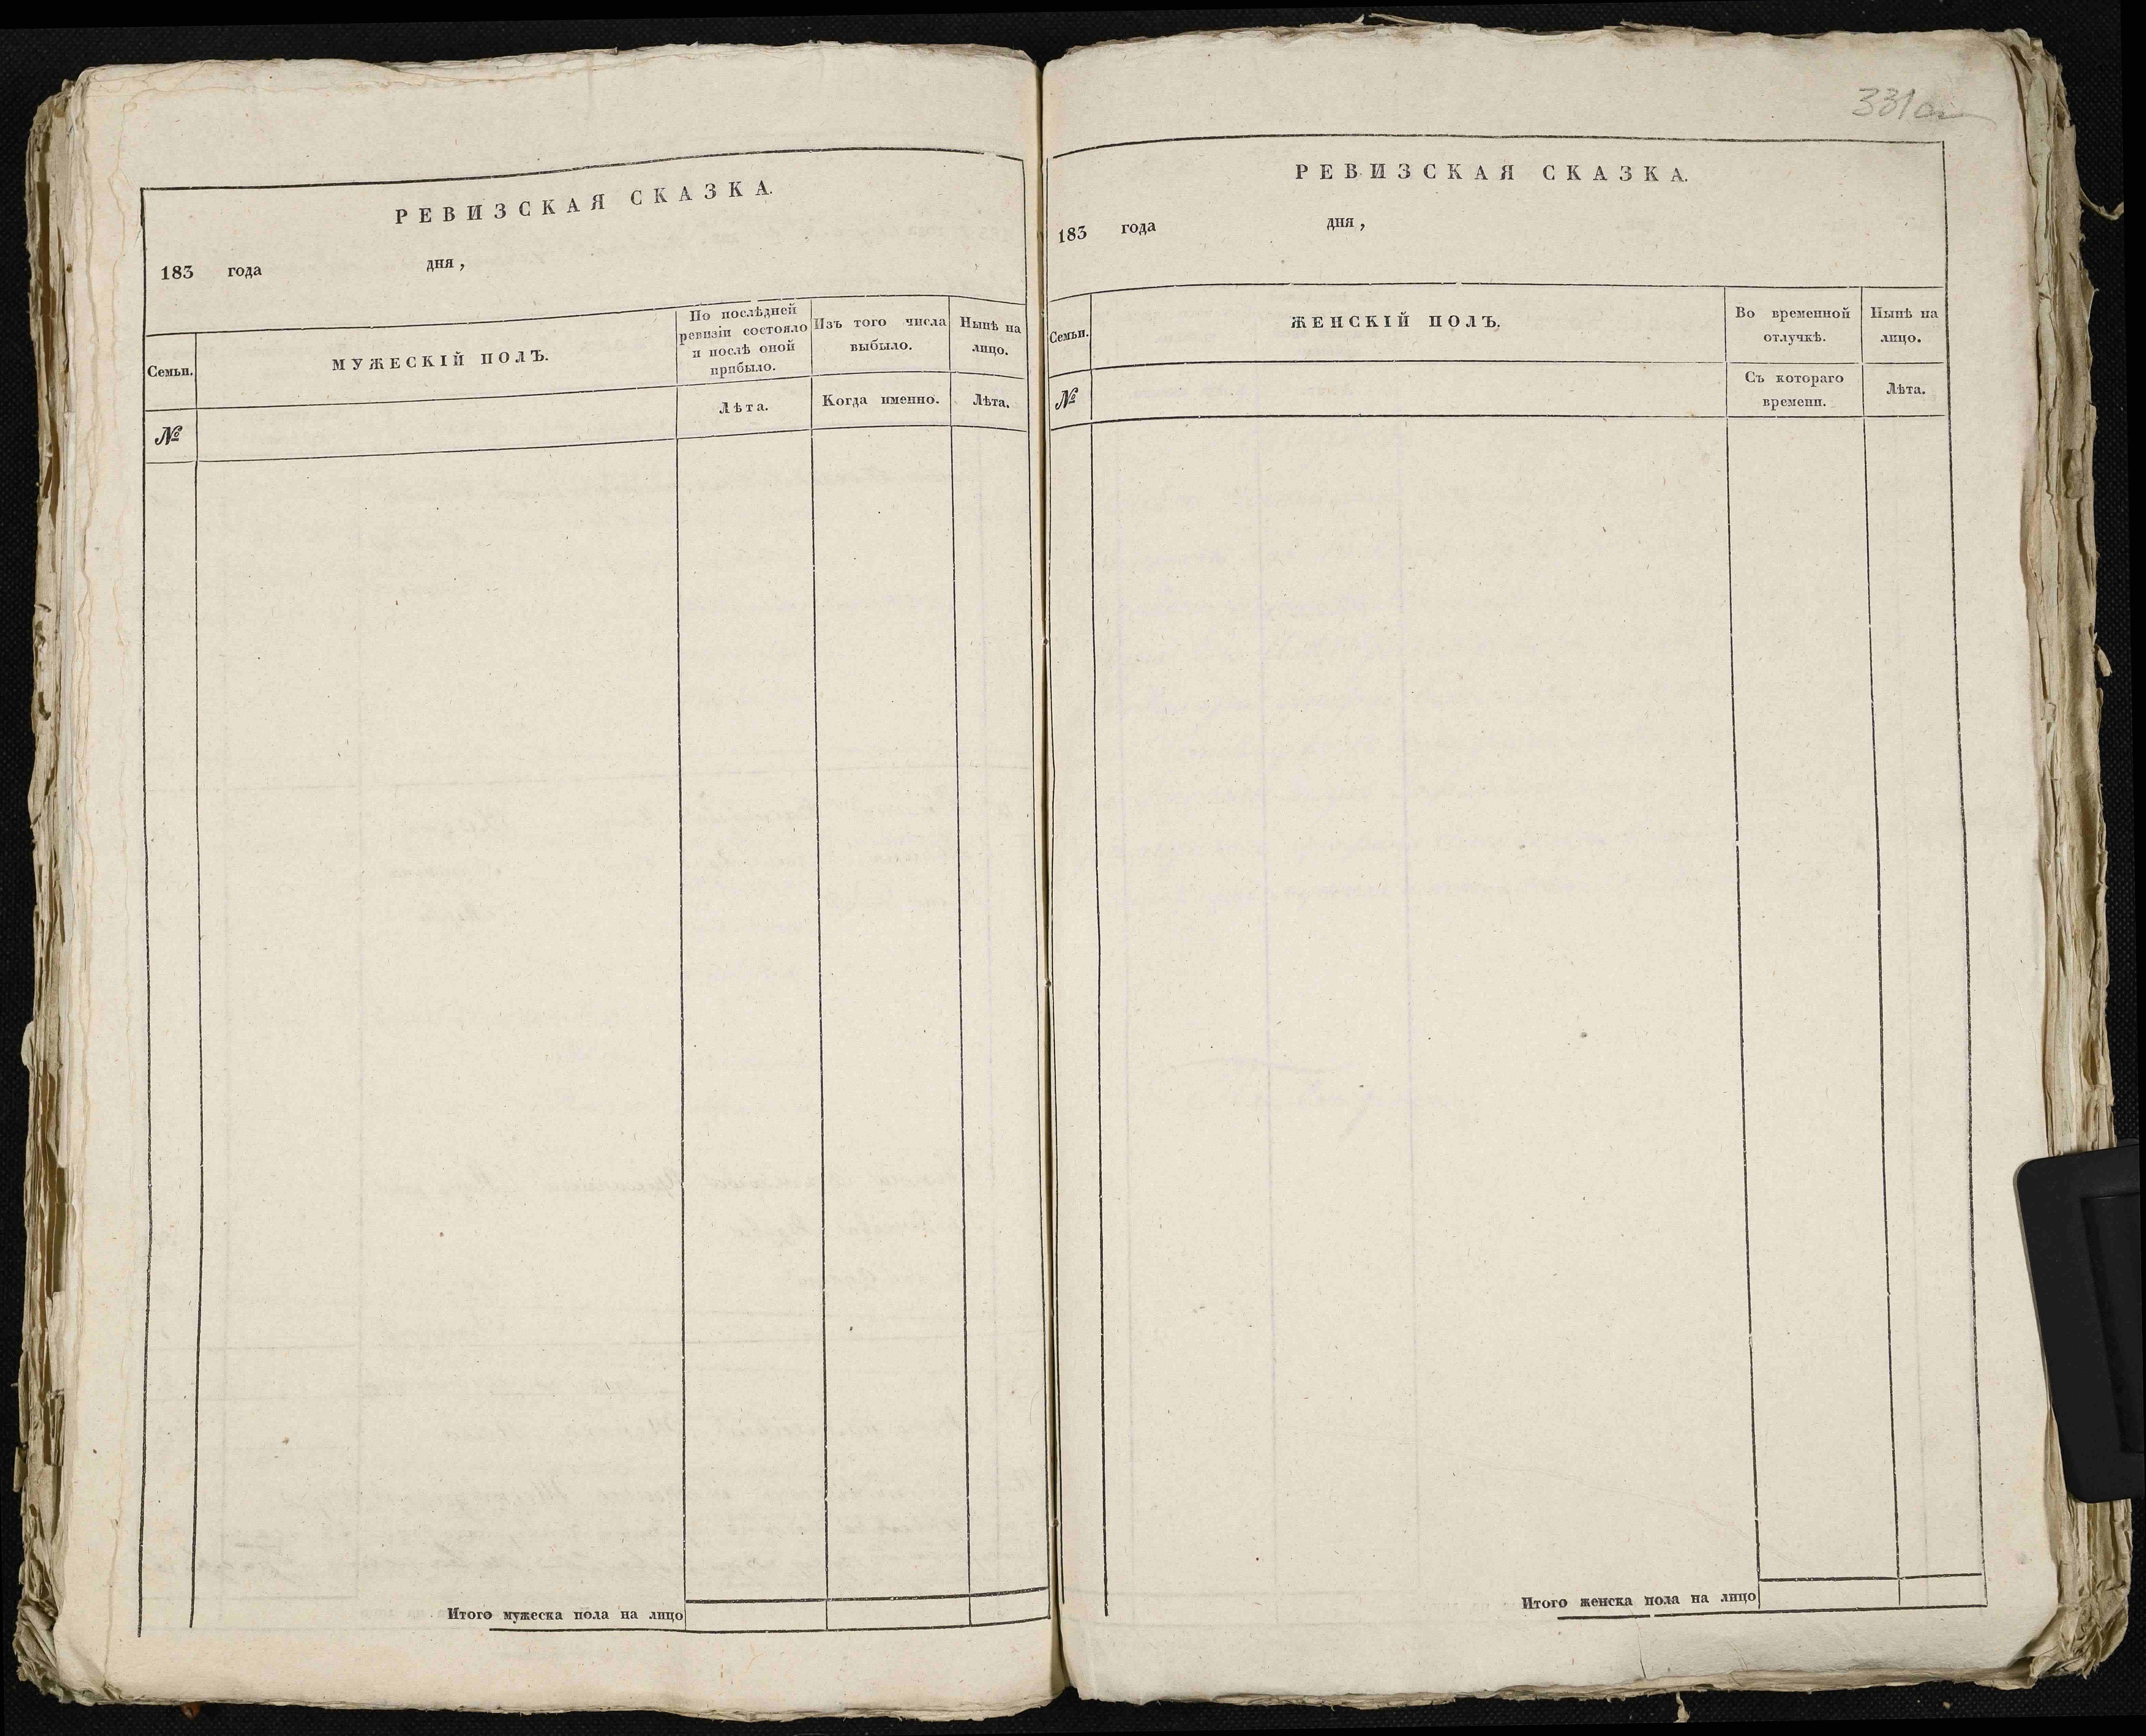 РЕВИЗСКАЯ СКАЗКА.
183 года дня,
Семьи.
МУЖЕСКІЙ ПОЛЪ.
По послѣдней
ревизіи состояло
и послѣ оной
прибыло.
Изъ того числа
выбыло.
Нынѣ на
лицо.
№
Лѣта.
Когда именно.
Лѣта.
Итого мужеска пола на лицо
331а
РЕВИЗСКАЯ СКАЗКА.
183 года дня,
Семьи.
ЖЕНСКІЙ ПОЛЪ.
Во временной
отлучкѣ.
Нынѣ на
лицо.
№
Съ котораго
времени.
Лѣта.
Итого женска пола на лицо